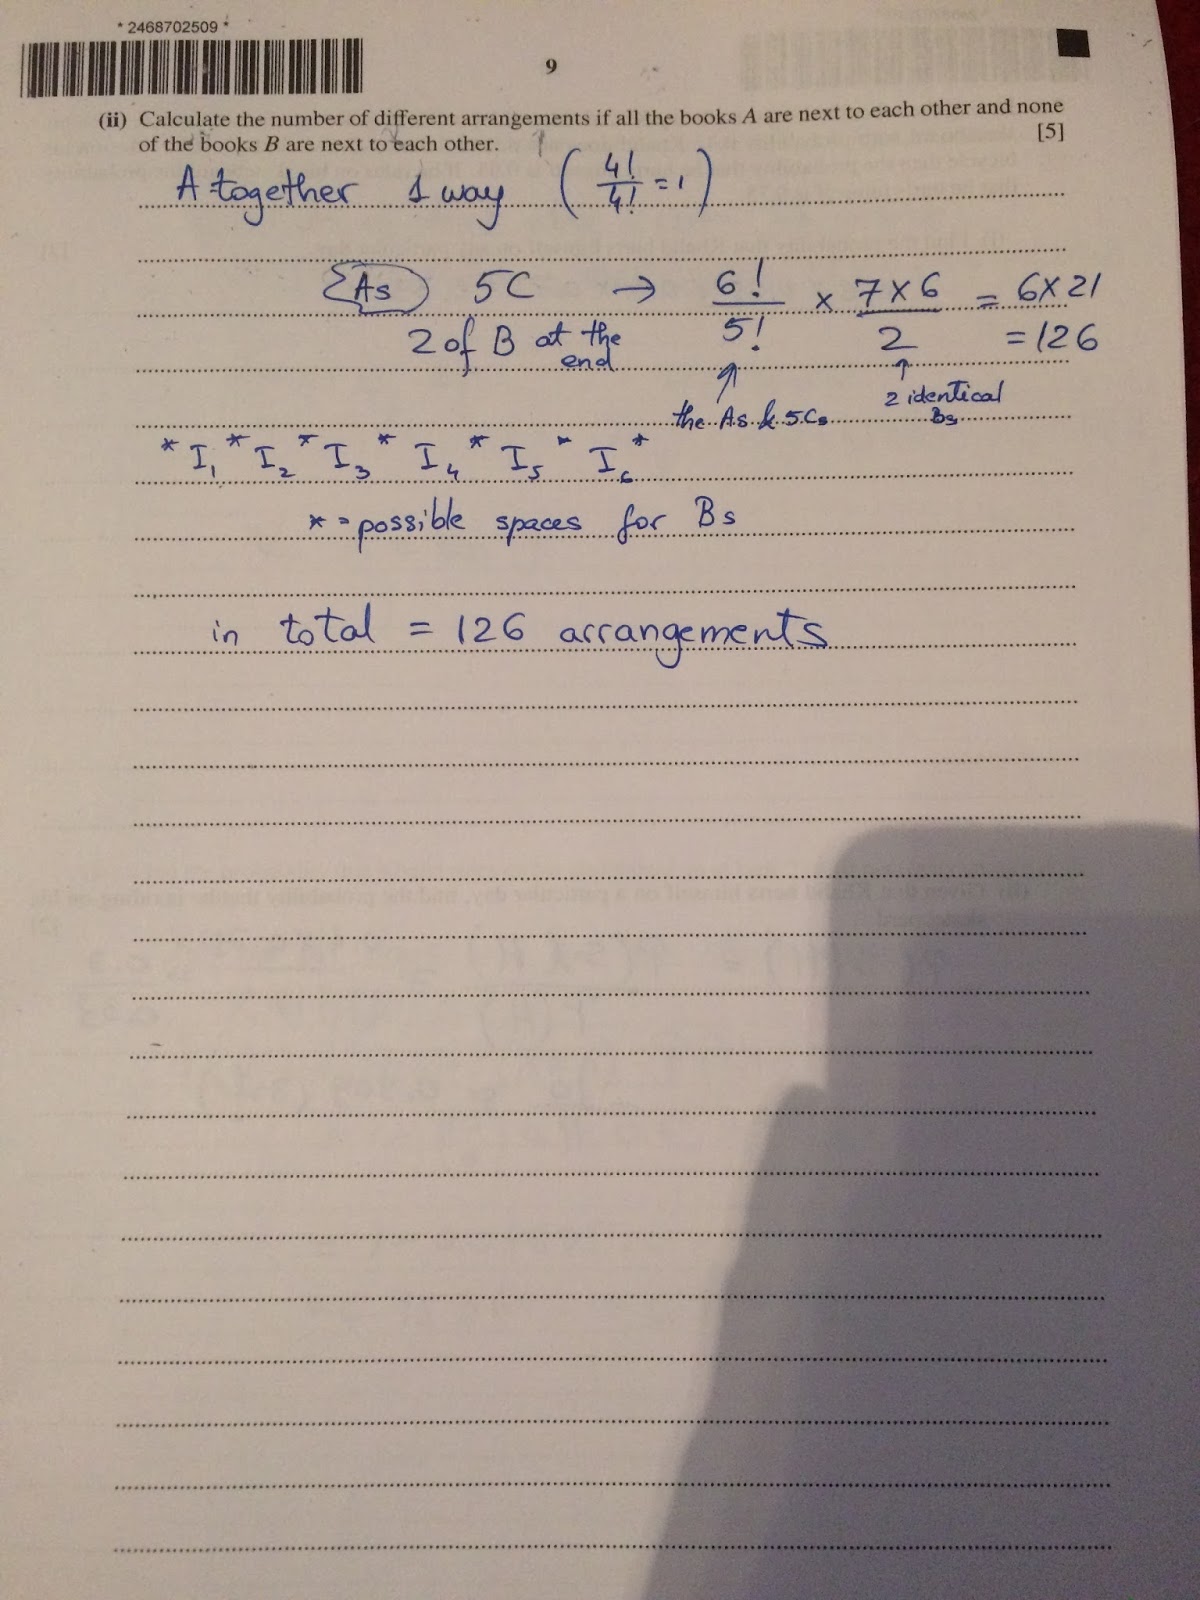 *2468702509*
9
(ii) Calculate the number of different arrangements if all the books A are next to each other and none
of the books B are next to each other. [5]
A together 1 way (4!/4! = 1)
As 5C → 6!/5! × 7×6/2 = 6×21
2 of B at the end = 126
the As & 5Cs 2 identical Bs
* I₁ * I₂ * I₃ * I₄ * I₅ * I₆ *
* = possible spaces for Bs
in total = 126 arrangements